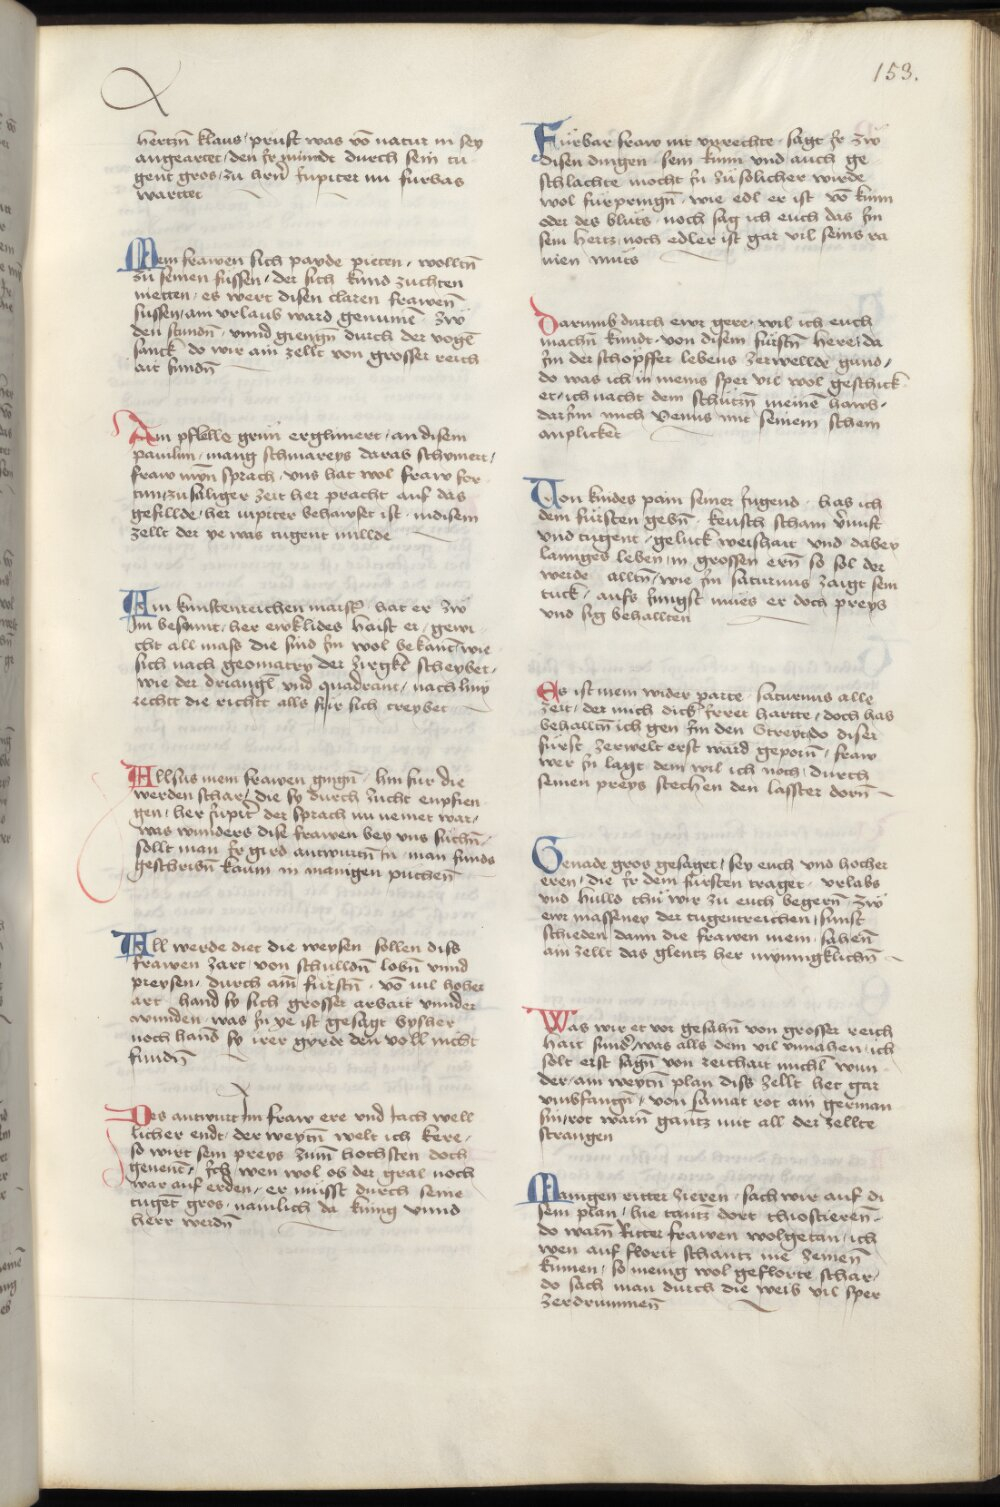 153.
hertzn̄ klaus / pruft was vō natur in sey
angeartet / den Ir nimdt durch sein tu
gent gros / zu hern̄ Jupiter nu furbas
warttet
Mein frawen sich payde pieten / wolltn̄
zu seinen fussen / der sich kund zuchten
nietten / es wert disen claren frawen
sussen / am vrlaub ward genumen zw
den stundn̄ / vnnd giengn̄ durch der vogel
sanck do wir ain zellt von grosser reich
ait fundn̄
Ain pfelle grun erglimert / an disem
paulun / mang schmareys darab schymert /
fraw mÿn sprach / vns hat wol fraw for
tun / zu saliger zeit her pracht auf das
gefillde / her iupiter behawset ist / in disem
zellt der ye was tugent millde
Ain kunstenreichen maistr̄ hat er zw
Im besannt / her ewklides haist er / gewi
cht all mass die sind Im wol bekant / wie
sich nach geomatry der zirgkl scheybet /
wie der driangl vnd quadrant / nach liny
rechtt die richtt alls fur sich treybet
Allsus mein frawen gingn̄ / hin fur die
werden schar / die sy durch zucht enpfien
gen / her Jupitr̄ der sprach nu nemet war /
was wunders dise frawen bey vns suchn̄ /
sollt man Ir gird antwurtn̄ In / man funds
geschribn̄ kaum in manigen puchen
All werde diet die weysen sollen diss
frawen zart / von schulldn̄ lobn̄ vnnd
preysen / durch ain furstn̄ / vō vil hoher
art / hand sy sich grosser arbait vnnder
wunden / was In ye ist gesagt bysher
noch hand sy irer gyrde den voll nicht
fundn̄
Des antwurt Im fraw ere vnd Jach well
licher endt / der weytn̄ welt ich kere /
so wirt sein preys zum hochsten doch
genent / Ich wen wol ob der gral noch
war auf erden / er müsst durch seine
tuget gros / namlich da kunig vnnd
herr werdn̄
Fürbar fraw nit vnrechte / sagt Ir zw
disen dingen / sein kunn vnd auch ge
schlachte mocht In zu solicher wirde
wol furpringn̄ / wie edl er ist vō kunn
oder des bluts / noch sag ich euch das Im
sein hertz noch edler ist gar vil seins ra
inen muts
Darumb durch ewr gere / wil ich euch
machn̄ kundt / von disem furstn̄ here / da
Im der schopffer lebens zerwellde gund /
do was ich in meins sper vil wol geschick
et / ich nacht dem schutzn̄ meinē haws /
darInn mich Venus mit seinem schein
anplicket
Von kindes pain seiner Jugend / hab ich
dem fursten gebn̄ / keusch scham v̄nuft
vnd tugent / geluck weishait vnd dabey
lanngs leben / in grossen ern̄ so sol der
werde alltn̄ / wie Im saturnus zaigt sein
tuck / aufs Jungst mues er doch preys
vnd sig behallten
Es ist mein wider parte / saturnus alle
zeit / der mich dick Irret hartte / doch hab
behalltn̄ ich gen Im den Streyt / do diser
furst zerwelt erst ward geporn̄ / fraw
wer In laÿt dem wil ich noch / durch
seinen preys stechen den lasster dorn̄
Genade gros gesaget / sey euch vnd hocher
eren / die Ir dem fursten traget / vrlabs
vnd hulld thu wir zu euch begern̄ / zw
ewr masseney der tugentreichen / sunst
schieden dann die frawen mein / sahen
ain zellt das glentz her mynnigklichn̄
Was wir et vor gesahn̄ von grosser reich
hait sind / was alls dem vil vnnahen / ich
solt erst sagn̄ von reichait michl wun
der / am weytn̄ plan diss zellt het gar
vmbfangn̄ / von samat rot ain german
sin / rot warn̄ gantz mit all der zellte
strangen
Manigen ritter zieren / sach wir auf di
sem plan / hie tantz dort thiostieren /
do warn̄ Ritter frawen wolgetan / ich
wen auf florit schantz nie zemen
kumen / so menig wol geflorte schar /
do sach man durch die weib vil sper
zerdrummen